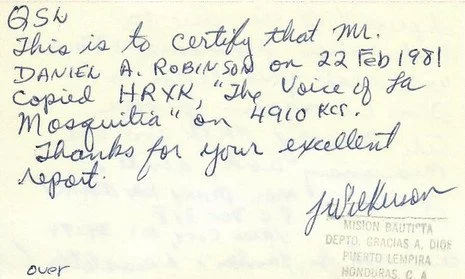 QSL
This is to certify that Mr.
DANIEL A. ROBINSON on 22 Feb 1981
Copied HRXK, "The Voice of La
Mosquitia" on 4910 KCS.
Thanks for your excellent
report.
MISION BAUTISTA
DEPTO. GRACIAS A DIOS
PUERTO LEMPIRA
HONDURAS, C. A
over